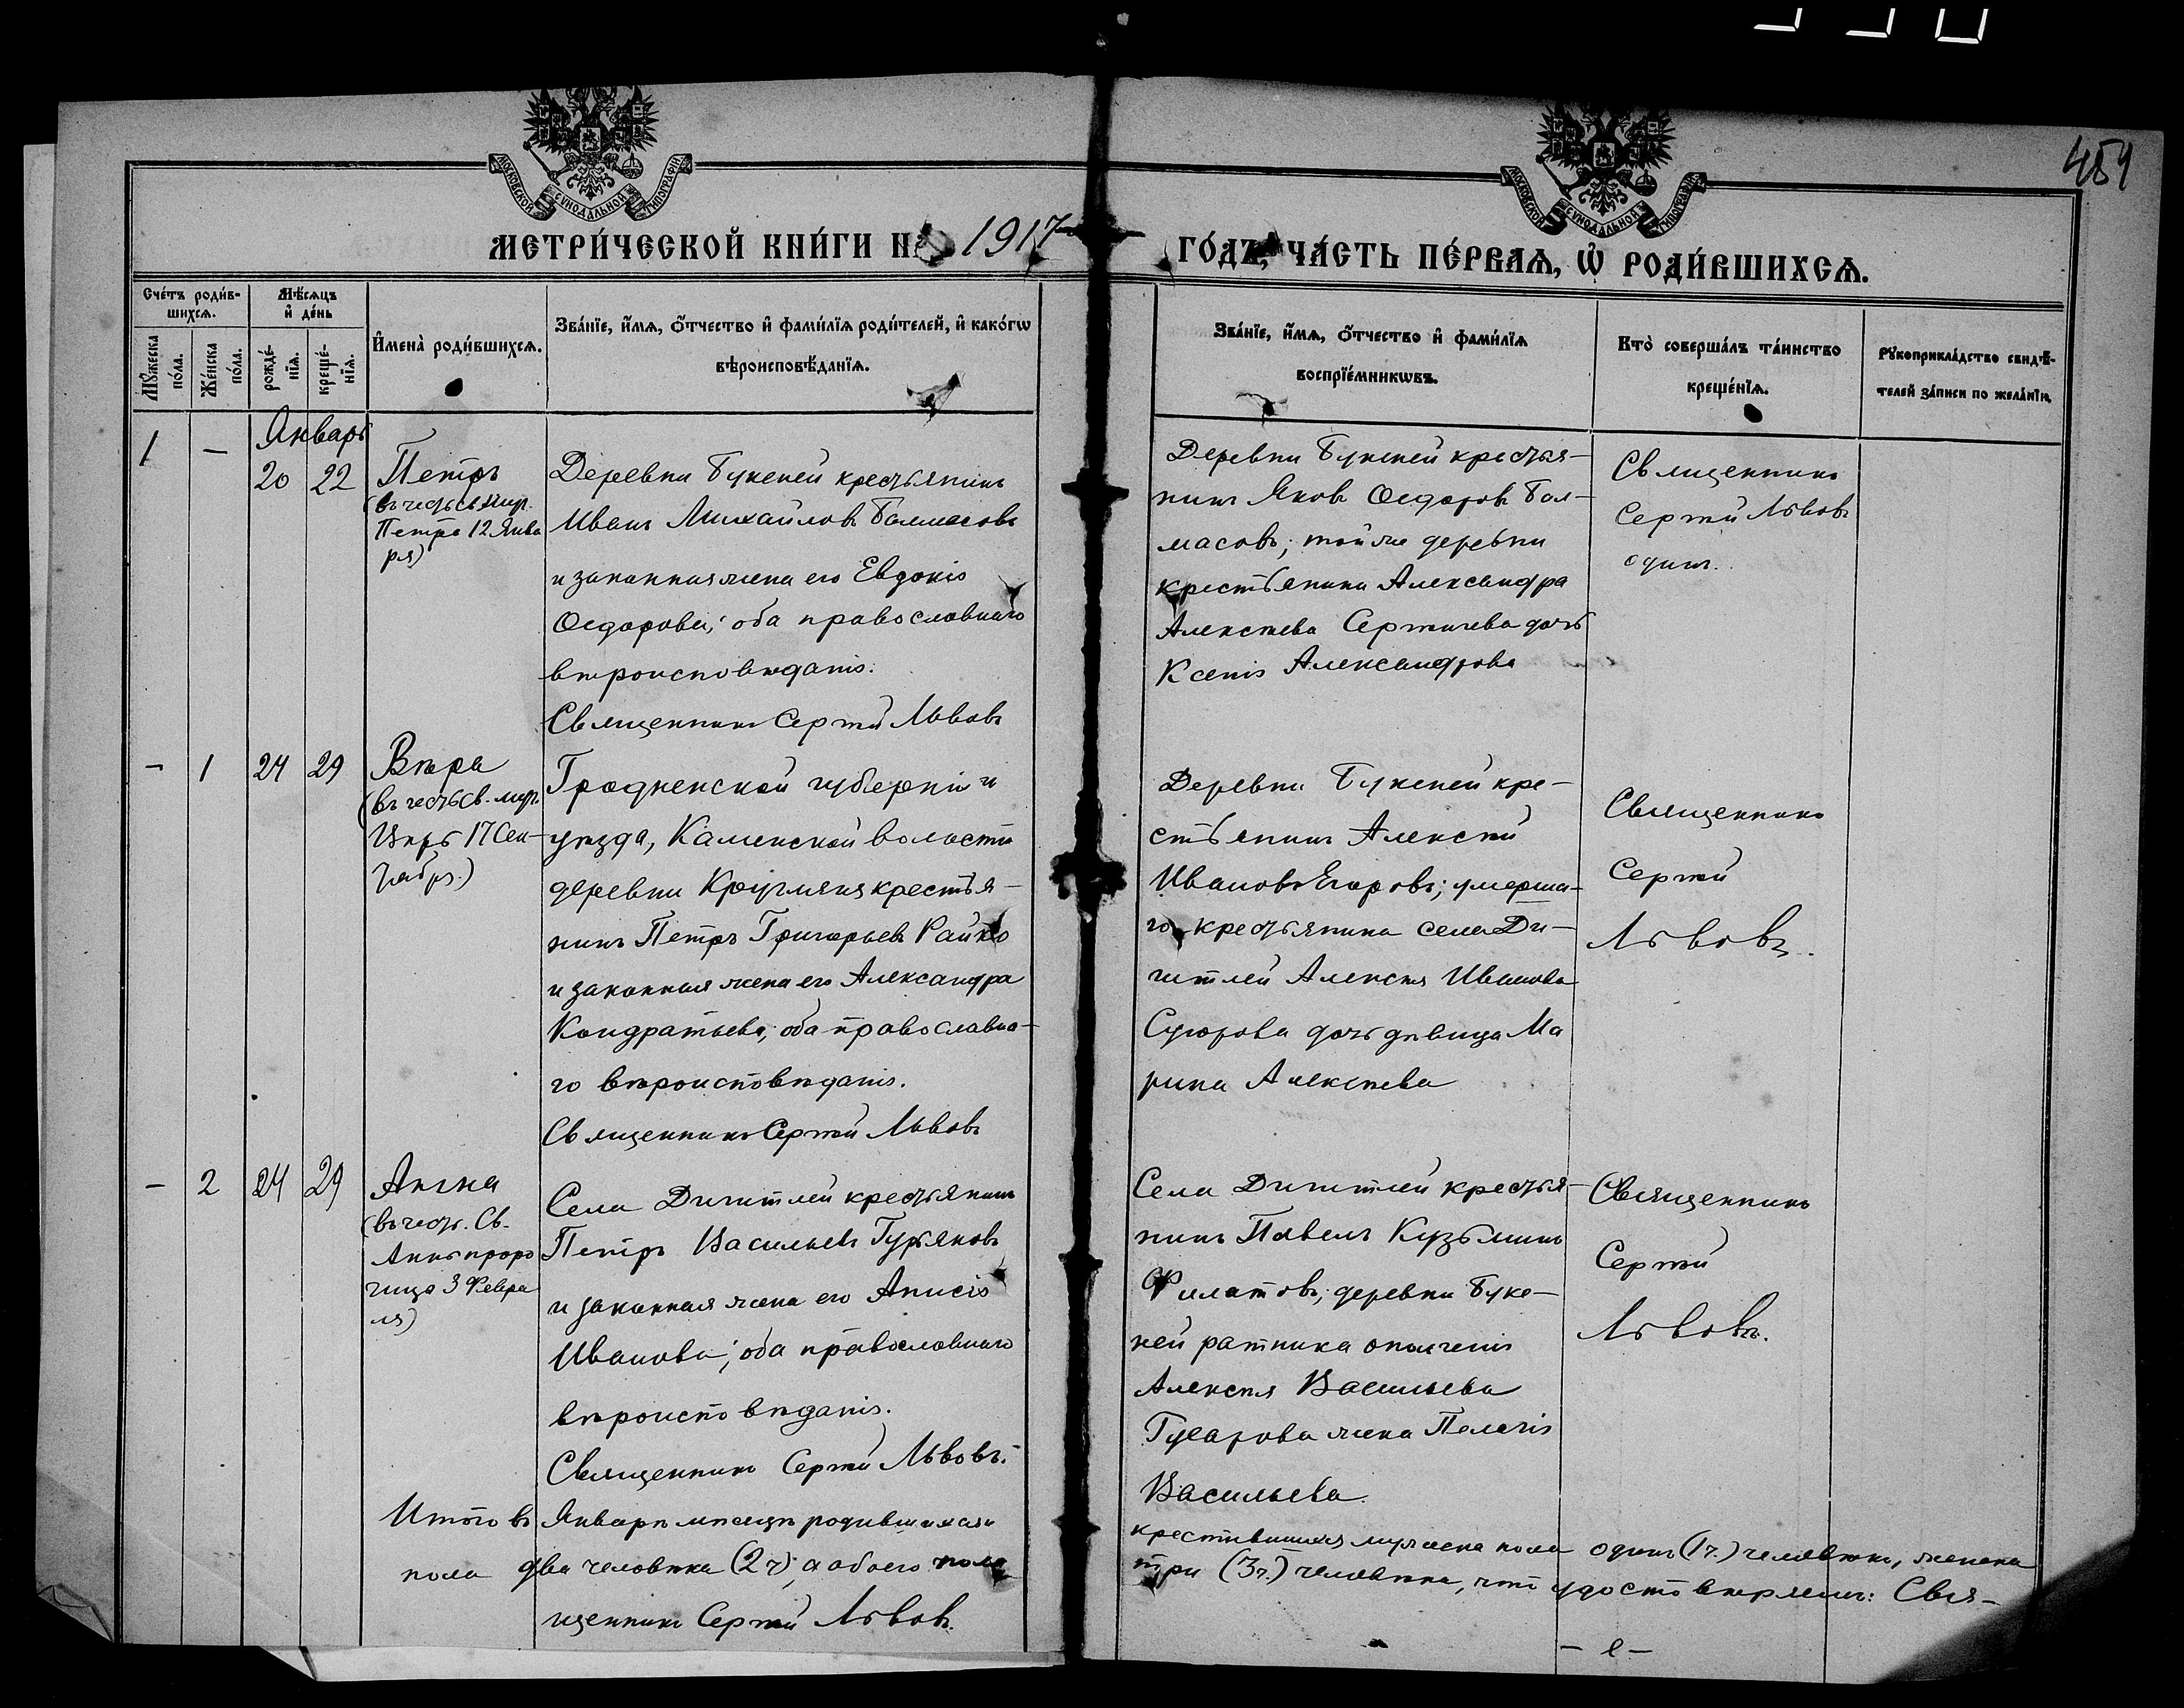 459
МОСКОВСКОЙ СѴНОДАЛЬНОЙ ТИПОГРАФІИ
МОСКОВСКОЙ СѴНОДАЛЬНОЙ ТИПОГРАФІИ
МЕТРИ́ЧЕСКОЙ КНИ́ГИ НА 1917 ГО́ДЪ, ЧА́СТЬ ПЕ́РВАѦ, Ѡ҆ РОДИ́ВШИХСѦ.
Сче́тъ роди́в-
шихсѧ.
Мꙋ́жеска
по́ла.
Же́нска
по́ла.
Мѣ́сѧцъ
и҆ де́нь
рожде́-
нїѧ.
креще́-
нїѧ.
И҆мена̀ роди́вшихсѧ.
Зва́нїе, и҆́мѧ, ѻ҆́тчество и҆ фами́лїѧ роди́телей, и҆ како́гѡ
вѣроисповѣ́данїѧ.
Зва́нїе, и҆́мѧ, ѻ҆́тчество и҆ фами́лїѧ
воспрїе́мникѡвъ.
Кто̀ соверша́лъ та́инство
креще́нїѧ.
Рꙋкоприкла́дство свидѣ́-
телей за́писи по жела́нїю.
1 — Январь
20 22
Петръ
(въ честь св. муч.
Петра 12 Янва
ря)
Деревни Букеней крестьянинъ
Иванъ Михайловъ Балмасовъ
и законная жена его Евдокія
Ѳедорова; оба православнаго
вѣроисповѣданія.
Священникъ Сергій Львовъ
Деревни Букеней крестья-
нинъ Яковъ Ѳедоровъ Бал-
масовъ; той же деревни
крестьянина Александра
Алексѣева Сергѣичева дочь
Ксенія Александрова
Священникъ
Сергій Львовъ
одинъ.
— 1 24 29
Вѣра
(въ честь св. муч.
Вѣры 17 Сен-
тября.)
Гродненской губерніи и
уѣзда, Каменской волости
деревни крестья-
нинъ Петръ Григорьевъ Райко
и законная жена его Александра
Кондратьева; оба православна-
го вѣроисповѣданія.
Священникъ Сергій Львовъ
Деревни Букеней кре-
стьянинъ Алексѣй
Ивановъ Егоровъ; умерша-
го крестьянина села Ди-
читлей Алексѣя Иванова
дочь дѣвица Ма
рина Алексѣева
Священникъ
Сергій
Львовъ.
— 2 24 29
Анна
(въ честь. Св.
Анны проро
чица 3 Февра
ля)
Села Дичитлей крестьянинъ
Петръ Васильевъ Гурьяновъ
и законная жена его Анисія
Иванова; оба православнаго
вѣроисповѣданія.
Священникъ Сергій Львовъ.
Села Дичитлей крестья-
нинъ Павелъ Кузьминъ
Филатовъ; деревни Буке-
ней ратника ополченія
Алексѣя Васильева
Гусарова жена Пелагія
Васильева.
Священникъ
Сергій
Львовъ.
Итого въ Январѣ мѣсяцѣ родившихся и крестившихся мужеска пола одинъ (1ч.) человѣкъ, женска
пола два человѣка (2ч), а обоего пола три (3ч.) человѣка, что удостовѣряемъ: Свя-
щенникъ Сергій Львовъ.